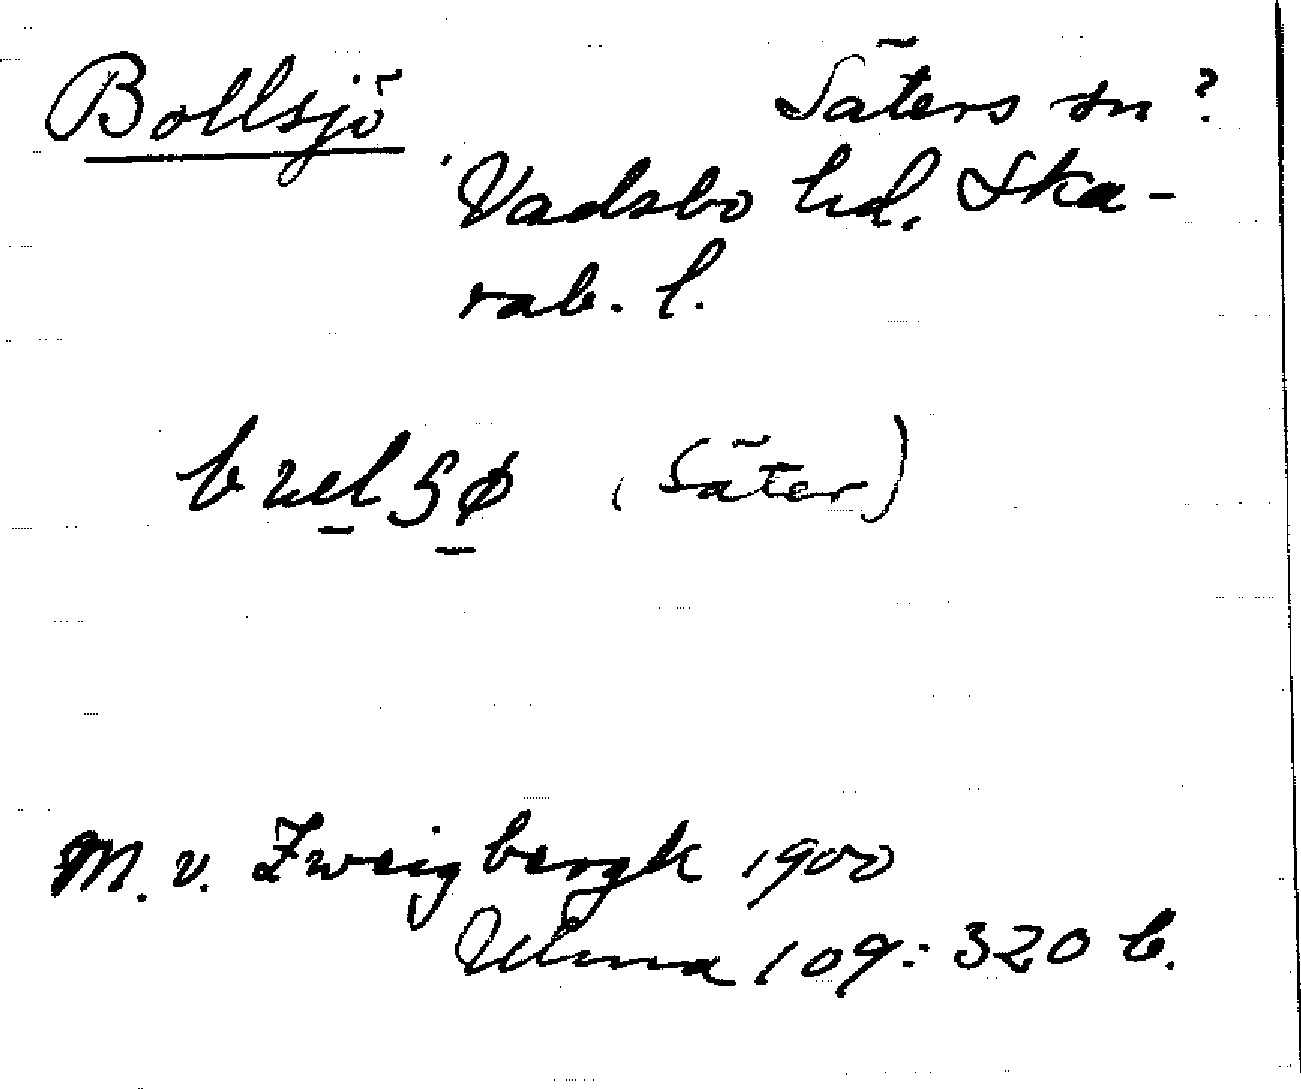 Bollsjö Säters sn?
Vadsbo hd. Ska-
rab. l.
(Säter)
M. v. Zweigbergk 1900
Uhma 109:320 b.